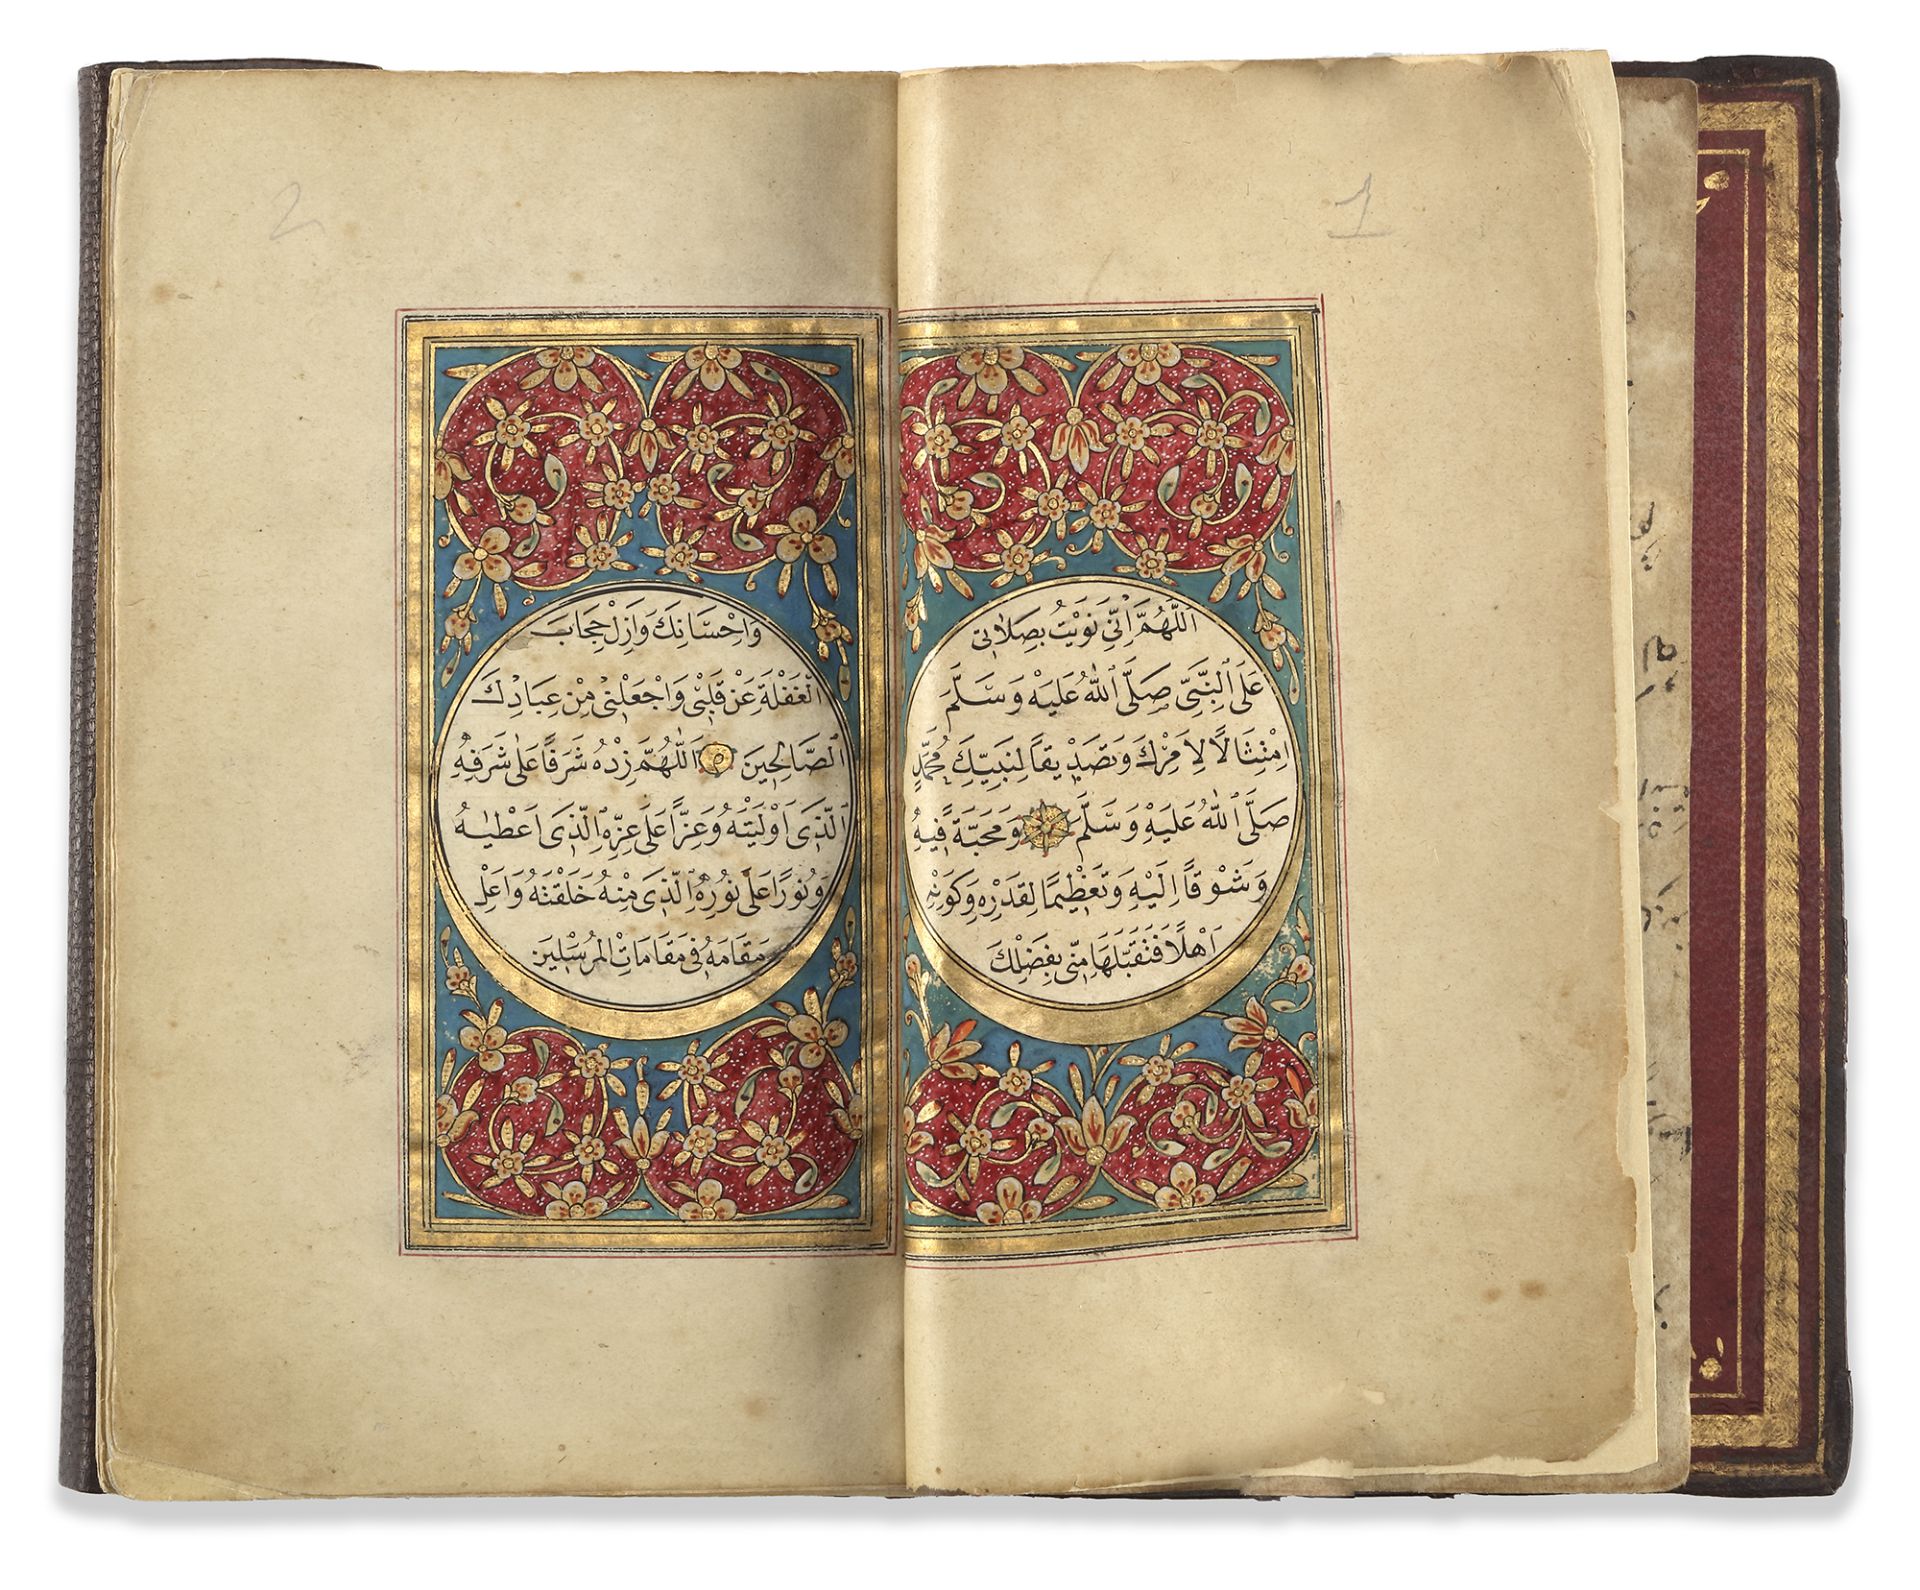 1
اَللّٰهُمَّ اِنّٖى نَوَيْتُ بِصَلَاتٖى
عَلَى النَّبِىِّ صَلَّى اللّٰهُ عَلَيْهِ وَسَلَّمَ
اِمْتِثَالًا لِاَمْرِكَ وَتَصْدٖيقًا لِنَبِيِّكَ مُحَمَّدٍ
صَلَّى اللّٰهُ عَلَيْهِ وَسَلَّمَ وَمَحَبَّةً فٖيهِ
وَشَوْقًا اِلَيْهِ وَتَعْظٖيمًا لِقَدْرِهِ وَكَوْنِهِ
اَهْلًا فَتَقَبَّلْهَا مِنّٖى بِفَضْلِكَ
2
وَاِحْسَانِكَ وَاَزِلْ حِجَابَ
الْغَفْلَةِ عَنْ قَلْبٖى وَاجْعَلْنٖى مِنْ عِبَادِكَ
الصَّالِحٖينَ اَللّٰهُمَّ زِدْهُ شَرَفًا عَلٰى شَرَفِهِ
الَّذٖى اَوْلَيْتَهُ وَعِزًّا عَلٰى عِزِّهِ الَّذٖى اَعْطَيْتَهُ
وَنُورًا عَلٰى نُورِهِ الَّذٖى مِنْهُ خَلَقْتَهُ وَاَعْلِ
مَقَامَهُ فٖى مَقَامَاتِ الْمُرْسَلٖينَ